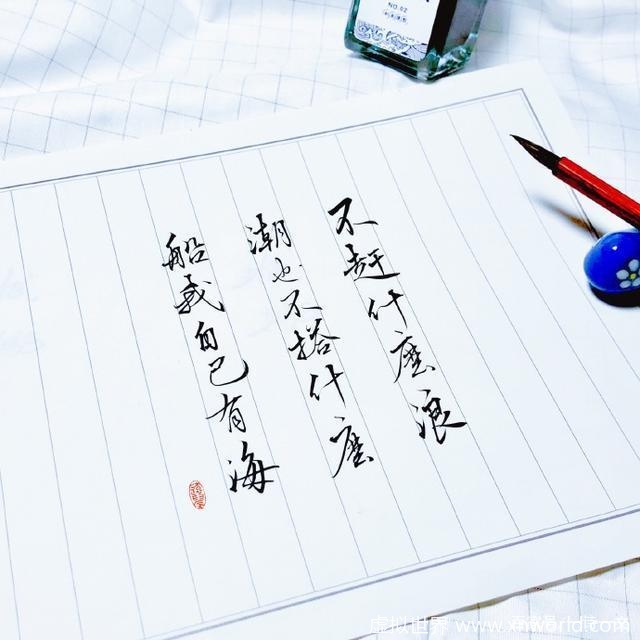 不赶什麽浪
潮也不搭什麽
船我自己有海
NO.02
虚拟世界 www.xnworld.com